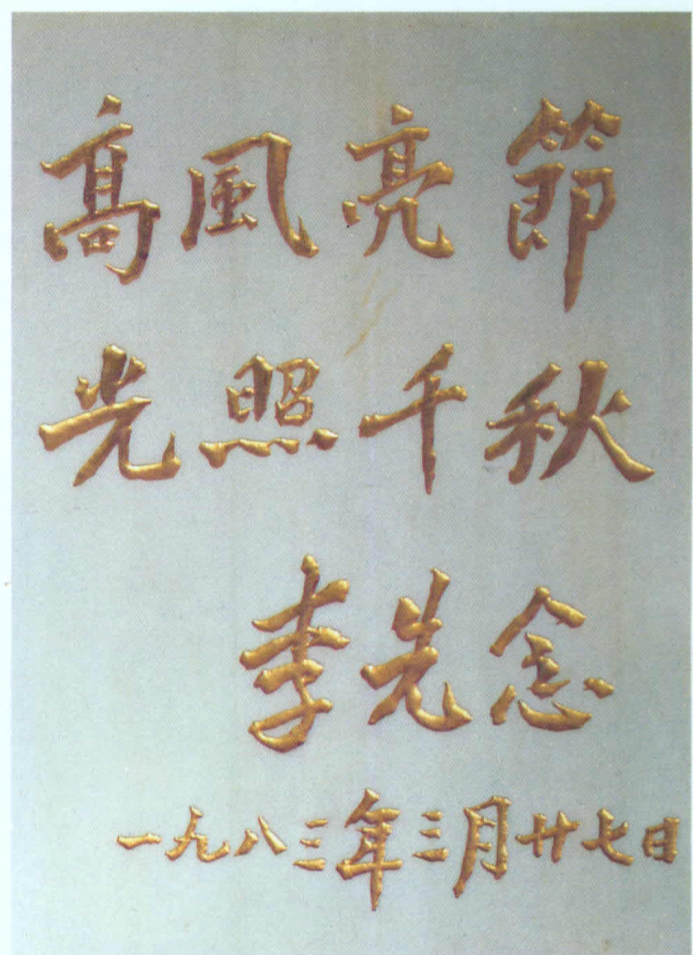 髙風亮節
光照千秋
李先念
一九八三年三月廿七日